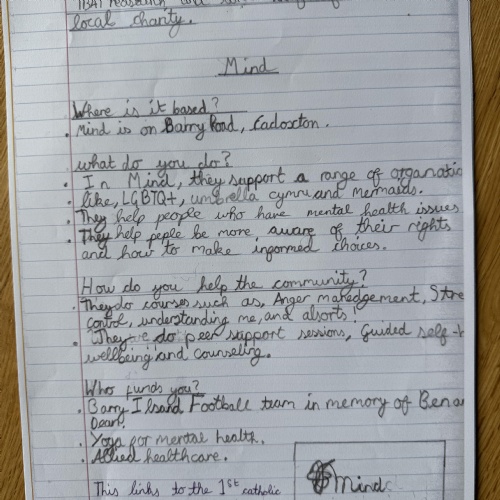 local charity.
Mind
Where is it based?
• Mind is on Barry Road, Cadoxton.
what do you do?
• In Mind, they support a range of organatio
• like, LGBTQ+, umbrella cymru and mermaids.
• They help people who have mental health issues
• They help peple be more aware of their rights
and how to make informed choices.
How do you help the community?
• They do courses such as, Anger manedgement, Stre
control, understanding me, and alsorts.
• They do peer support sessions, Guided self-h
wellbeing and counseling.
Who funds you?
• Barry Ilsand Football team in memory of Ben
Dean.
• Yoga for mental health.
• Allied healthcare.
Mind
This links to the 1st catholic